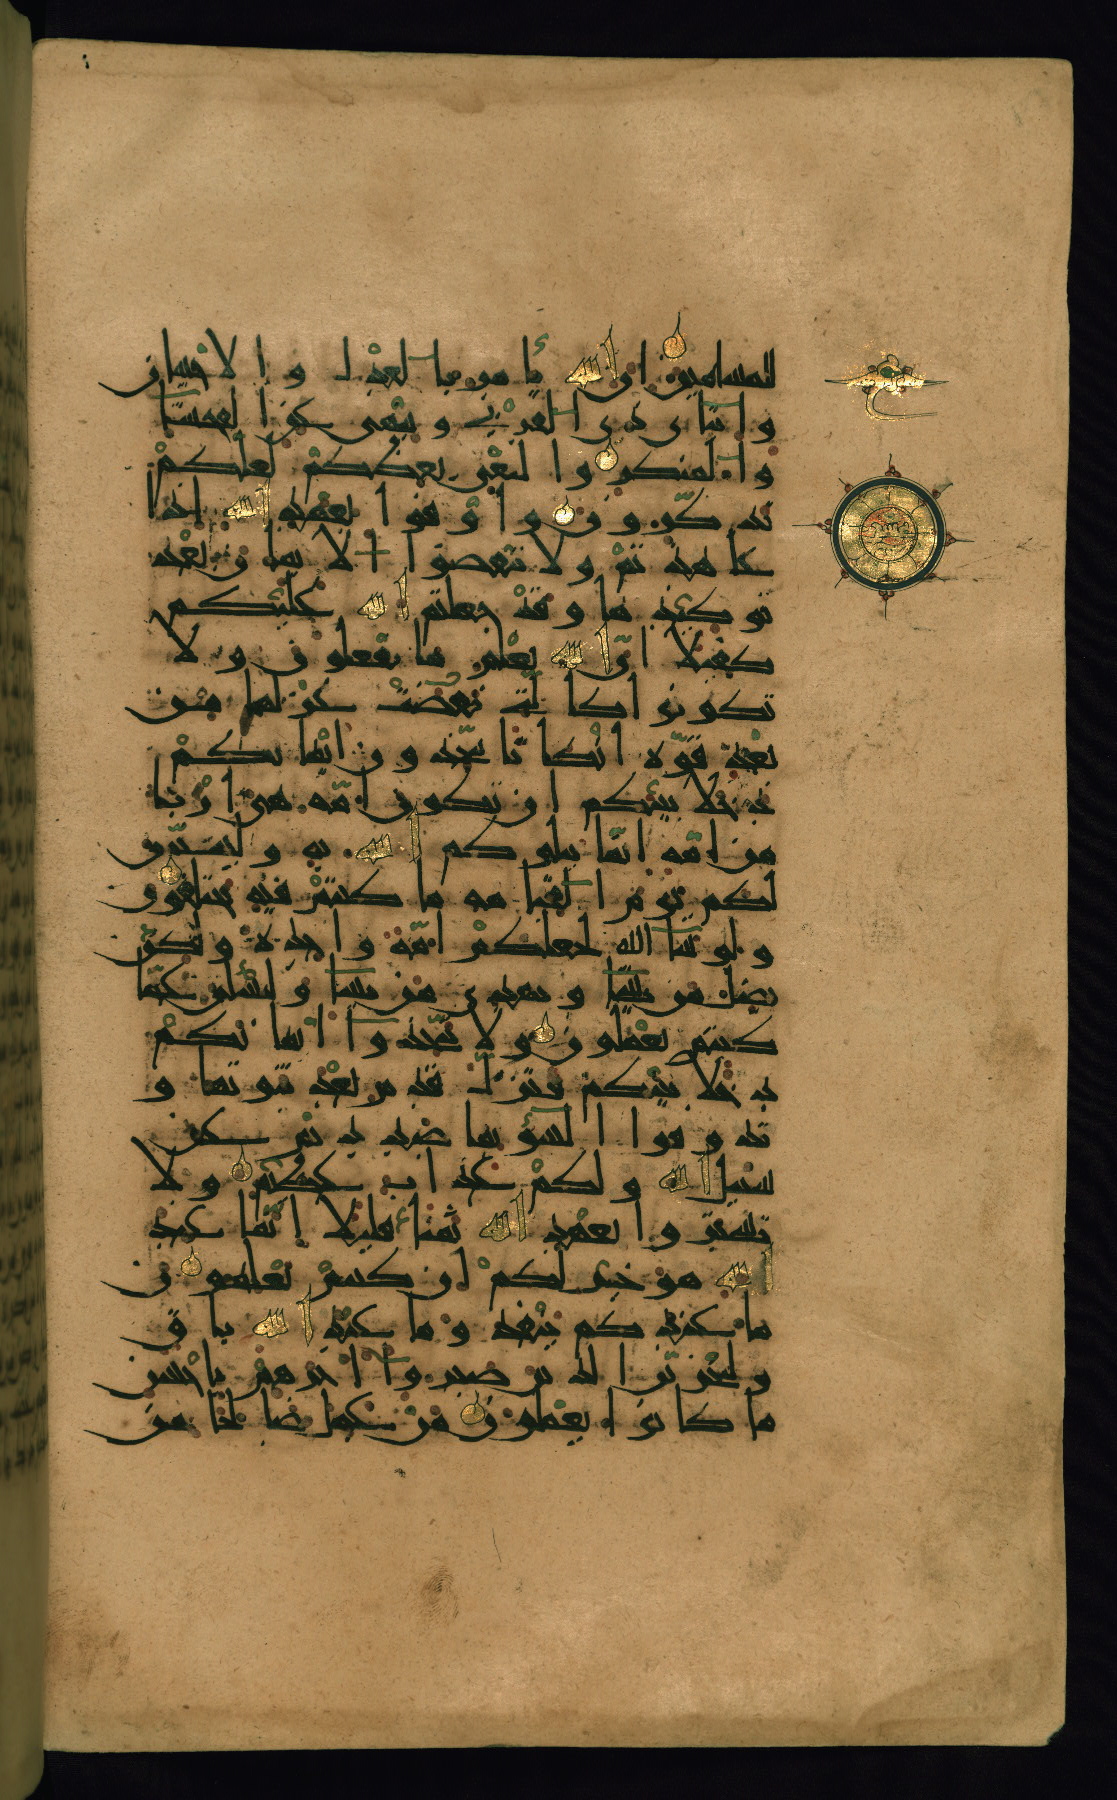 للمسلمين ان الله يأمر بالعدل والاحسان
وايتاى ذى القربى وينهى عن الفحشا
والمنكر والبغى يعظكم لعلكم
تذكرون واوفوا بعهد الله اذا
عاهدتم ولا تنقضوا الايمان بعد
توكيدها وقد جعلتم الله عليكم
كفيلا ان الله يعلم ما تفعلون ولا
تكونوا كالتى نقضت غزلها من
بعد قوة انكاثا تتخذون ايمانكم
دخلا بينكم ان تكون امة هى اربى
من امة انما يبلوكم الله به وليبينن
لكم يوم القيمة ما كنتم فيه تختلفون
ولو شا الله لجعلكم امة واحدة ولكن
يضل من يشا ويهدى من يشا ولتسئلن عما
كنتم تعملون ولا تتخذوا ايمانكم
دخلا بينكم فتزل قدم بعد ثبوتها و
تذوقوا السؤ بما صددتم عن
سبيل الله ولكم عذاب عظيم ولا
تشتروا بعهد الله ثمنا قليلا انما عند
الله هو خير لكم ان كنتم تعلمون
ما عندكم ينفد وما عند الله باق
ولنجزين الذين صبروا اجرهم باحسن
ما كانوا يعملون من عمل صالحا من